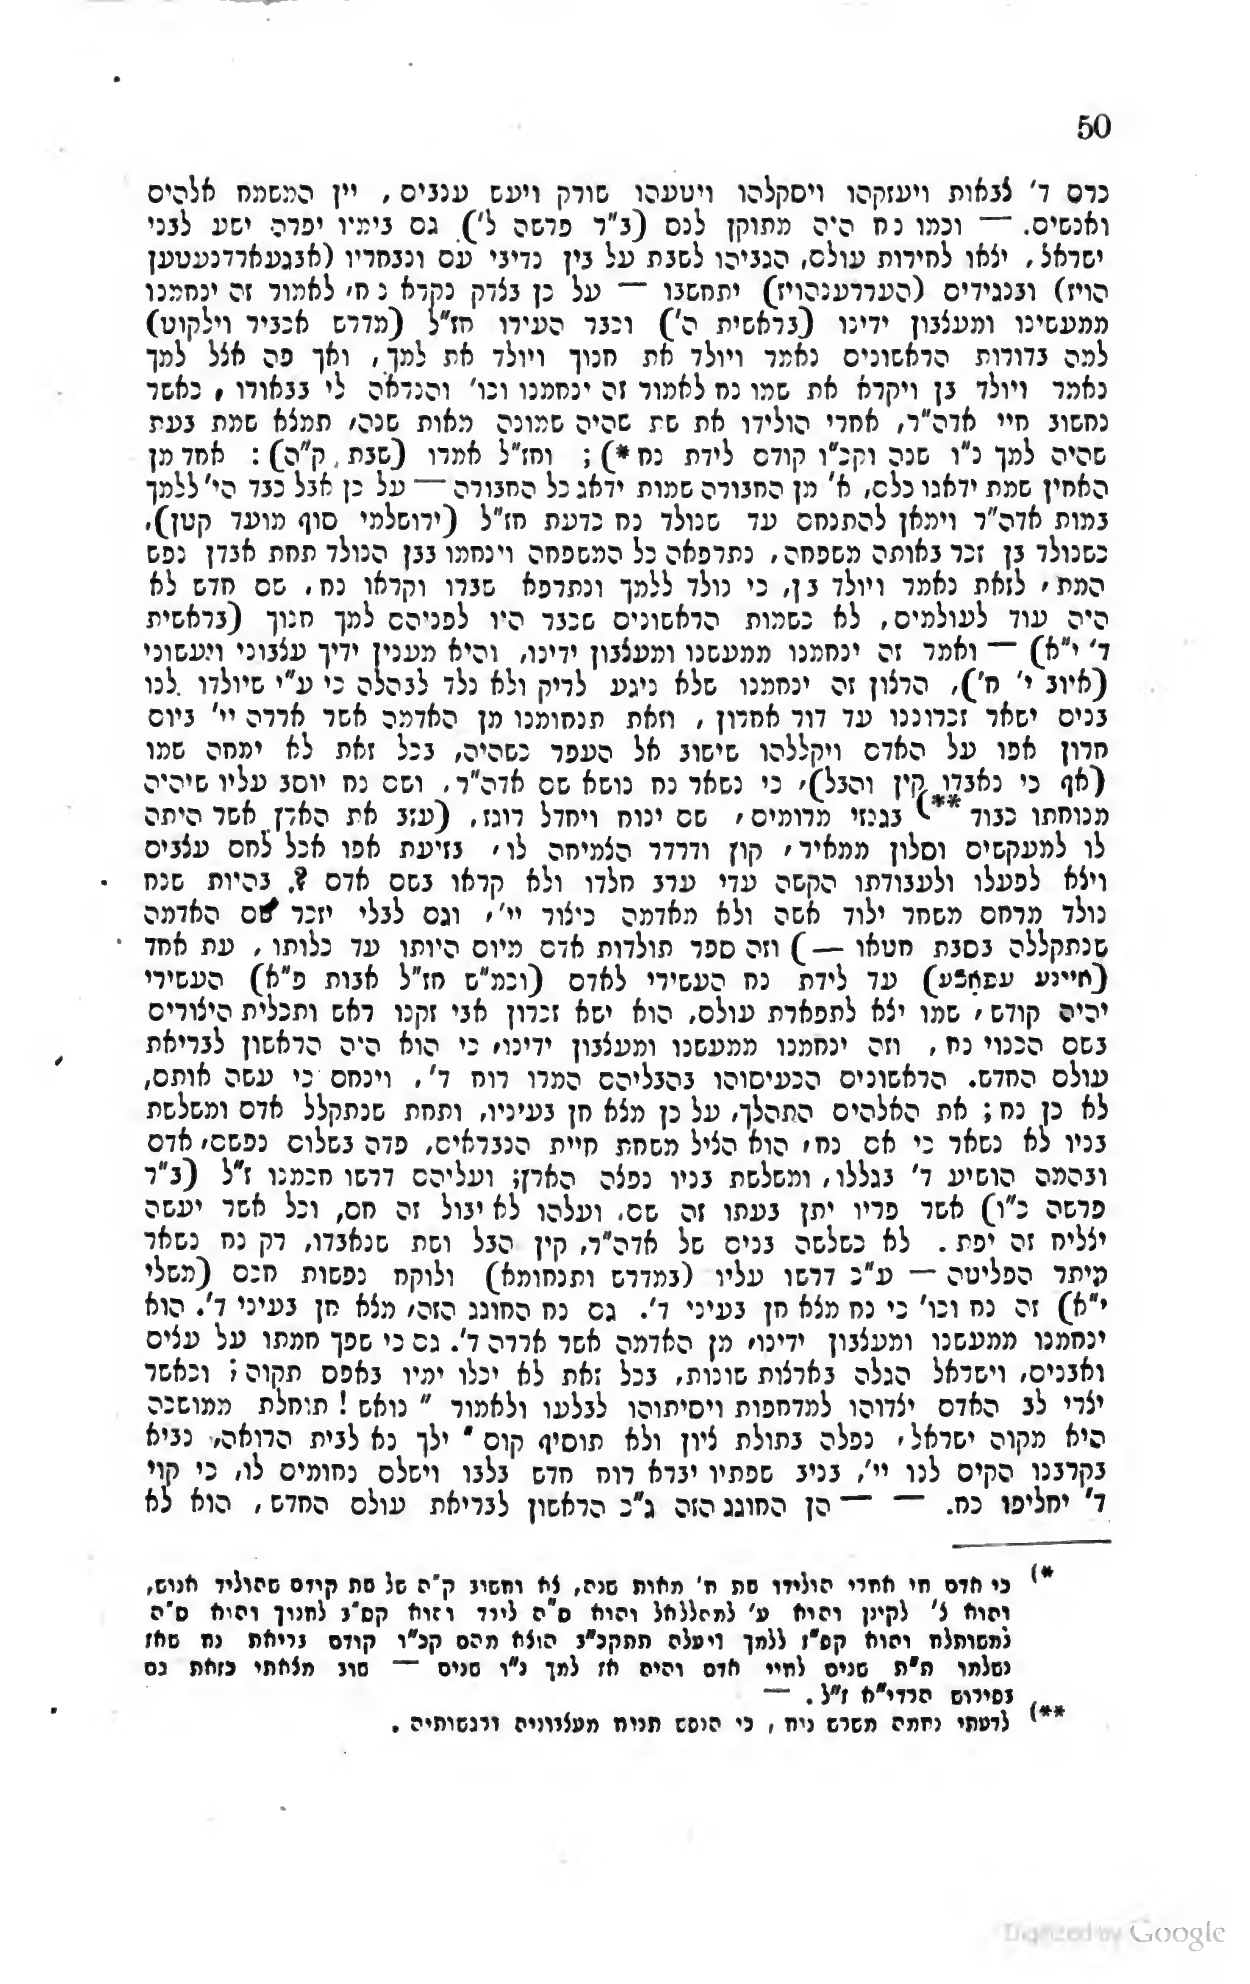 50
כרם ד' צבאות ויעזקהו ויסקלהו ויטעהו שורק ויעש ענבים, יין המשמח אלהים
ואנשים. — וכמו נח היה מתוקן לנס (ב"ר פרשה ל'). גם בימיו יפרה ישע לבני
ישראל, יצאו לחירות עולם, הגביהו לשבת על בין נדיבי עם ונבחריו (אבגעארדנעטען
הויז) ובנגידים (העררענהויז) יתחשבו — על כן בצדק נקרא נח, לאמור זה ינחמנו
ממעשינו ומעצבון ידינו (בראשית ה') וכבר העירו חז"ל (מדרש אבכיר וילקוט)
למה בדורות הראשונים נאמר ויולד את חנוך ויולד את למך, ואך פה אצל למך
נאמר ויולד בן ויקרא את שמו נח לאמור זה ינחמנו וכו' והנראה לי בבאורו, כאשר
נחשוב חיי אדה"ר, אחרי הולידו את שת שהיה שמונה מאות שנה, תמצא שמת בעת
שהיה למך נ"ו שנה וקכ"ו קודם לידת נח *); וחז"ל אמרו (שבת ק"ה): אחד מן
האחין שמת ידאגו כלם, א' מן החבורה שמות ידאג כל החבורה — על כן אבל כבד הי' ללמך
במות אדה"ר וימאן להתנחם עד שנולד נח כדעת חז"ל (ירושלמי סוף מועד קטן),
כשנולד בן זכר באותה משפחה, נתרפאה כל המשפחה וינחמו בבן הנולד תחת אבדן נפש
המת, לזאת נאמר ויולד בן, כי נולד ללמך ונתרפא שברו וקראו נח, שם חדש לא
היה עוד לעולמים, לא כשמות הראשונים שכבר היו לפניהם למך חנוך (בראשית
ד' י"א) — ואמר זה ינחמנו ממעשנו ומעצבון ידינו, והיא מענין ידיך עצבוני ויעשוני
(איוב י' ח'), הרצון זה ינחמנו שלא ניגע לריק ולא נלד לבהלה כי ע"י שיולדו לנו
בנים ישאר זכרוננו עד דור אחרון, וזאת תנחומנו מן האדמה אשר אררה יי' ביום
חרון אפו על האדם ויקללהו שישוב אל העפר כשהיה, בכל זאת לא ימחה שמו
(אף כי נאבדו קין והבל), כי נשאר נח נושא שם אדה"ר, ושם נח יוסב עליו שיהיה
מנוחתו כבוד **) בגנזי מרומים, שם ינוח ויחדל רוגז, (עזב את הארץ אשר היתה
לו למעקשים וסלון ממאיר, קוץ ודרדר הצמיחה לו, בזיעת אפו אכל לחם עצבים
ויצא לפעלו ולעבודתו הקשה עדי ערב חלדו ולא קראו בשם אדם ?, בהיות שנח
נולד מרחם משחר ילוד אשה ולא מאדמה כיצור יי', וגם לבלי יזכר שם האדמה
שנתקללה בסבת חטאו —) וזה ספר תולדות אדם מיום היותו עד כלותו, עת אחד
עד לידת נח העשירי לאדם (וכמ"ש חז"ל אבות פ"א) העשירי
יהיה קודש, שמו יצא לתפארת עולם, הוא ישא זכרון אבי זקנו ראש ותכלית היצורים
בשם הכנוי נח, וזה ינחמנו ממעשנו ומעצבון ידינו, כי הוא היה הראשון לבריאת
עולם החדש. הראשונים הכעיסוהו בהבליהם המרו רוח ד', וינחם כי עשה אותם,
לא כן נח; את האלהים התהלך, על כן מצא חן בעיניו, ותחת שנתקלל אדם ומשלשת
בניו לא נשאר כי אם נח, הוא הציל משחת חיית הנבראים, פדה בשלום נפשם, אדם
ובהמה הושיע ד' בגללו, ומשלשת בניו נפצה הארץ; ועליהם דרשו חכמנו ז"ל (ב"ר
פרשה כ"ו) אשר פריו יתן בעתו זה שם, ועלהו לא יבול זה חם, וכל אשר יעשה
יצליח זה יפת. לא כשלשה בנים של אדה"ר, קין הבל ושת שנאבדו, רק נח נשאר
מיתר הפליטה — ע"כ דרשו עליו (במדרש ותנחומא) ולוקח נפשות חכם (משלי
י"א) זה נח וכו' כי נח מצא חן בעיני ד'. גם נח החוגג הזה, מצא חן בעיני ד'. הוא
ינחמנו ממעשנו ומעצבון ידינו, מן האדמה אשר אררה ד'. גם כי שפך חמתו על עצים
ואבנים, וישראל הגלה בארצות שונות, בכל זאת לא יכלו ימיו באפס תקוה; וכאשר
יצרי לב האדם יצדוהו למדחפות ויסיתוהו לבלעו ולאמור " נואש ! תוחלת ממושכה
היא מקוה ישראל, נפלה בתולת ציון ולא תוסיף קום " ילך נא לבית הרואה, נביא
בקרבנו הקים לנו יי', בניב שפתיו יברא רוח חדש בלבו וישלם נחומים לו, כי קוי
ד' יחליפו כח. — — הן החוגג הזה ג"כ הראשון לבריאת עולם החדש, הוא לא
*) כי אדם חי אחרי הולידו שת ח' מאות שנה, צא וחשוב ק"ה של שת קודם שהוליד אנוש,
והוא צ' לקינן והוא ע' למהללאל והוא ס"ה לירד והוא קס"ב לחנוך והוא ס"ה
למתושלח והוא קפ"ז ללמך ויעלה תתקכ"ב הוצא מהם קכ"ו קודם בריאת נח שאז
נשלמו ת"ת שנים לחיי אדם והיה אז למך נ"ו שנים — שוב מצאתי כזאת גם
בפירוש הרדי"א ז"ל. —
**) לדעתי נחמה משרש ניח, כי הנפש תנוח מעצבוניה ורגשותיה.
Digitized by Google